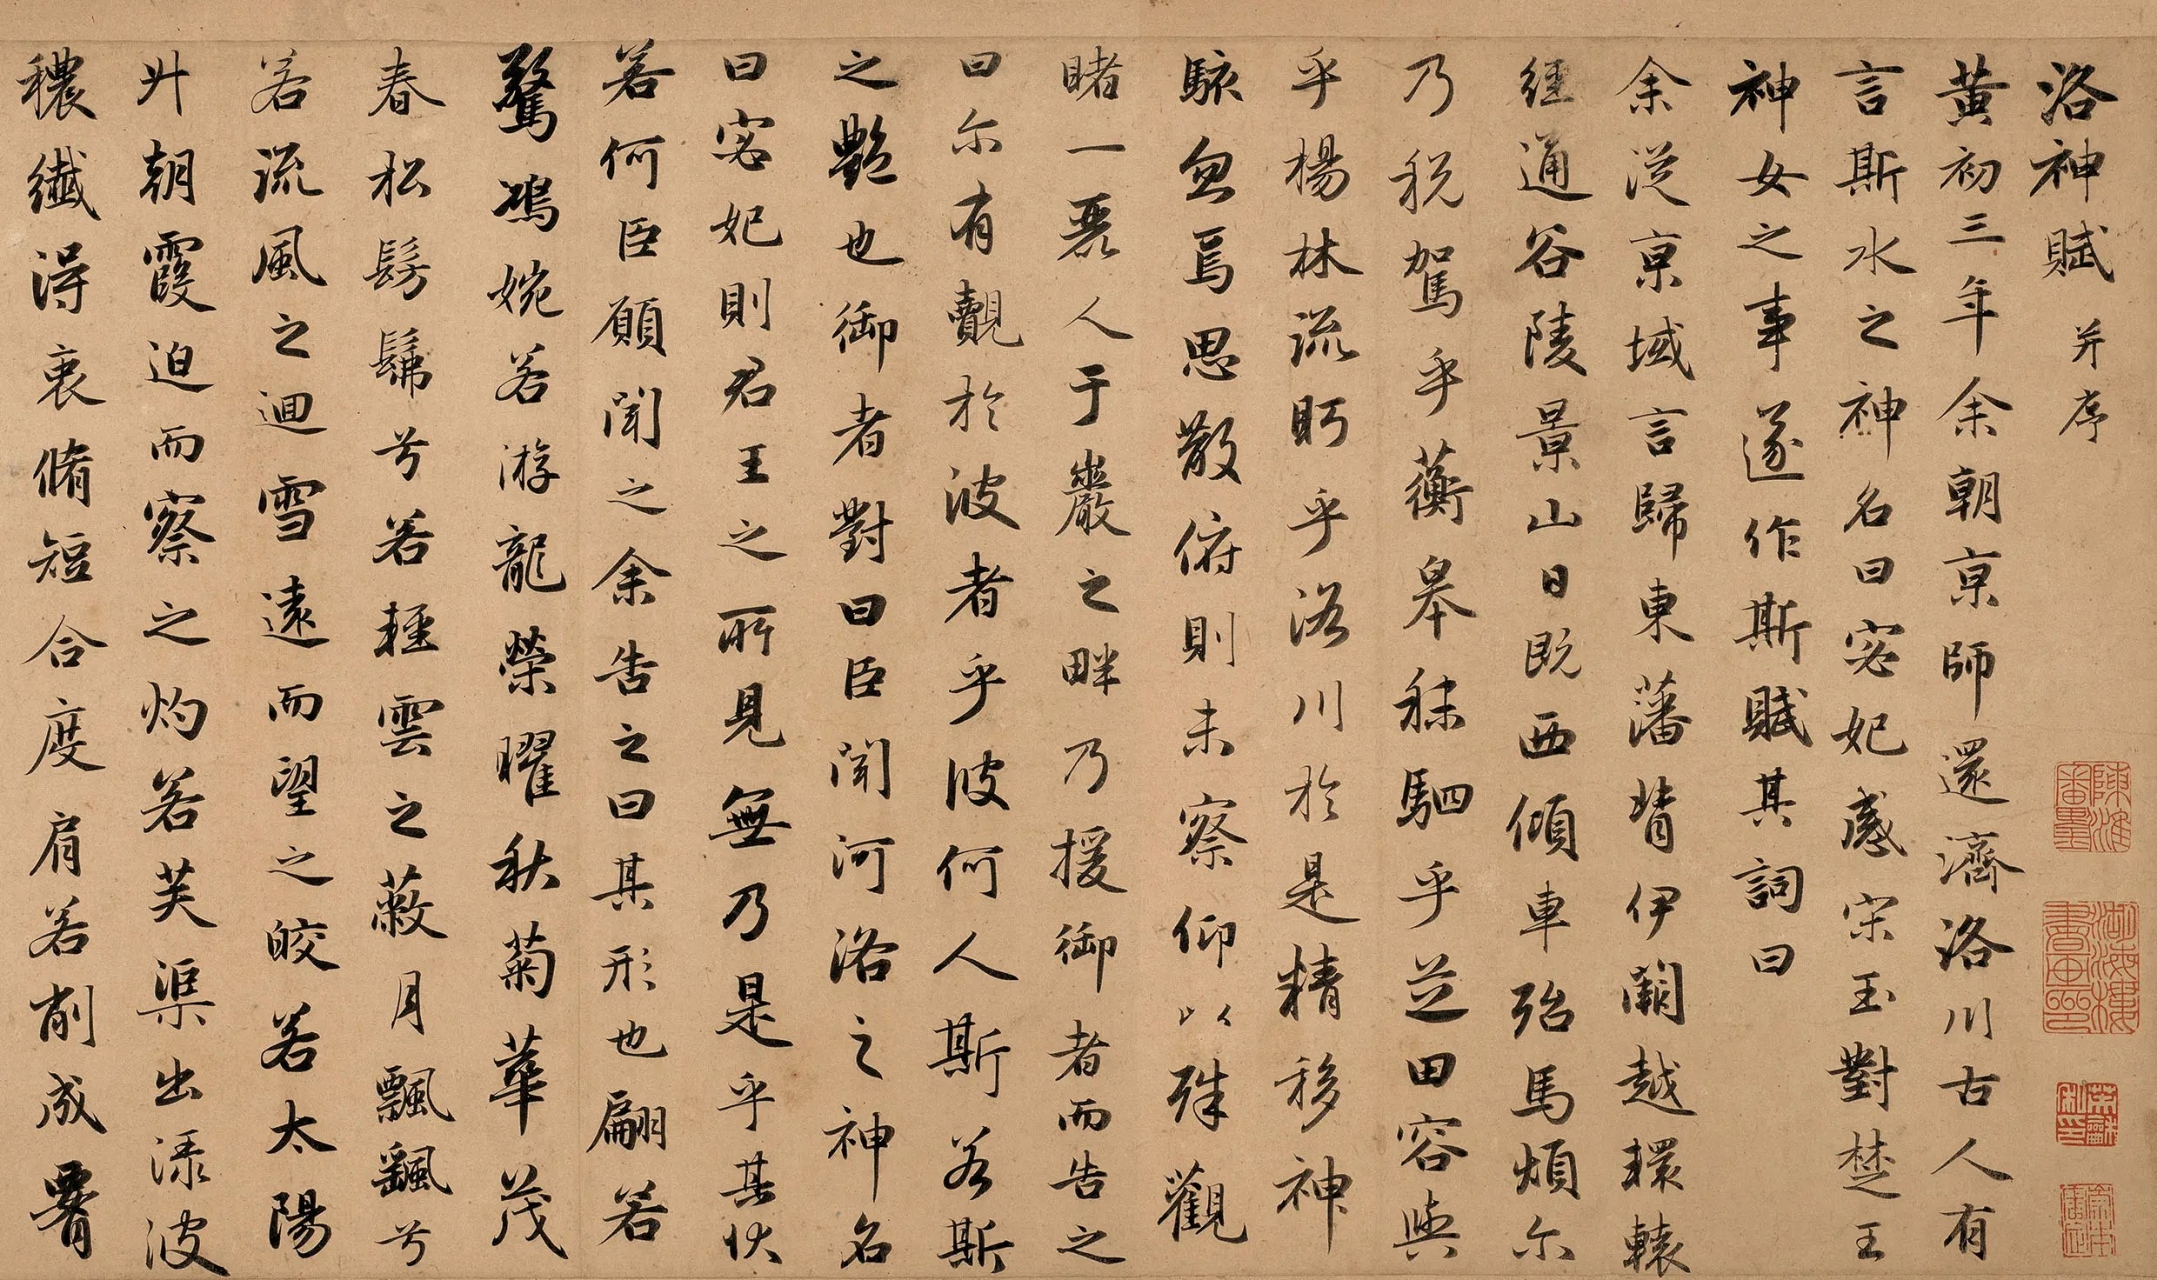 洛神賦 并序
黄初三年余朝京師還濟洛川古人有
言斯水之神名曰宓妃感宋玉對楚王
神女之事遂作斯賦其詞曰
余從京域言歸東藩背伊闕越轘轅
經通谷陵景山日既西傾車殆馬煩尔
乃税駕乎蘅皋秣駟乎芝田容與
乎楊林流眄乎洛川於是精移神
駭忽焉思散俯則未察仰以殊觀
睹一麗人于巖之畔乃援御者而告之
曰尔有覿於彼者乎彼何人斯若斯
之豔也御者對曰臣聞河洛之神名
曰宓妃則君王之所見無乃是乎其狀
若何臣願聞之余告之曰其形也翩若
驚鴻婉若游龍榮曜秋菊華茂
春松髣髴兮若輕雲之蔽月飄颻兮
若流風之迴雪遠而望之皎若太陽
升朝霞迫而察之灼若芙渠出渌波
穠纖得衷脩短合度肩若削成署